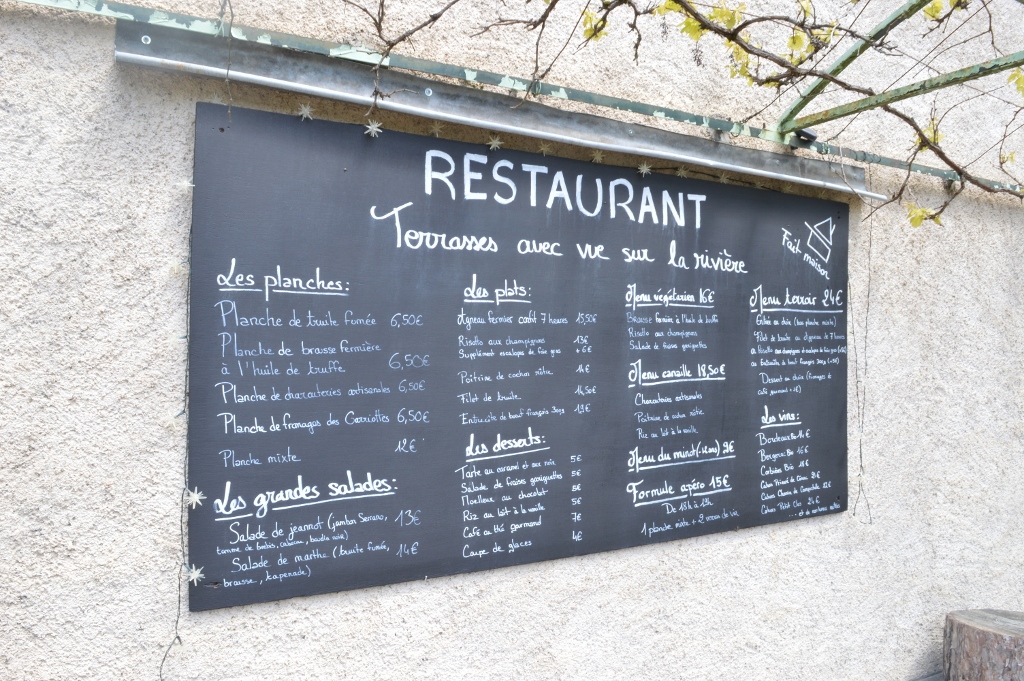 RESTAURANT
Terrasses avec vue sur la rivière
Fait maison
Les planches:
Planche de truite fumée 6,50€
Planche de brousse fermière
à l'huile de truffe 6,50€
Planche de charcuteries artisanales 6,50€
Planche de fromages des Carriottes 6,50€
Planche mixte 12€
Les grandes salades:
Salade de jeannot (jambon Serrano, 13€
tomme de brebis,
Salade de marthe (truite fumée, 14€
brousse, tapenade)
Les plats:
Agneau fermier confit 7 heures 15,50€
Risotto aux champignons 13€
Supplément escalopes de foie gras + 6€
Poitrine de cochon rôtie 14€
Filet de truite 14,50€
Entrecôte de bœuf français 300g 19€
Les desserts:
Tarte au caramel et aux noix 5€
Salade de fraises gariguettes 5€
Moelleux au chocolat 5€
Riz au lait à la vanille 5€
Café ou thé gourmand 7€
Coupe de glaces 4€
Menu végétarien 16€
Brousse fermière à l'huile de truffe
Risotto aux champignons
Salade de fraises gariguettes
Menu canaille 18,50€
Charcuteries artisanales
Poitrine de cochon rôtie
Riz au lait à la vanille
Menu du minot (-12ans) 9€
Formule apéro 15€
De 18h à 19h
1 planche mixte + 2 verres de vin
Menu terroir 24€
Entrée au choix (hors planche mixte)
Filet de truite ou agneau de 7 heures
ou Risotto aux champignons et escalopes de foie gras
ou Entrecôte de bœuf français 300g
Dessert au choix (fromages ou
café gourmand + 2€)
Les vins:
Bordeaux Bio 16€
Bergerac Bio 16€
Corbières Bio 18€